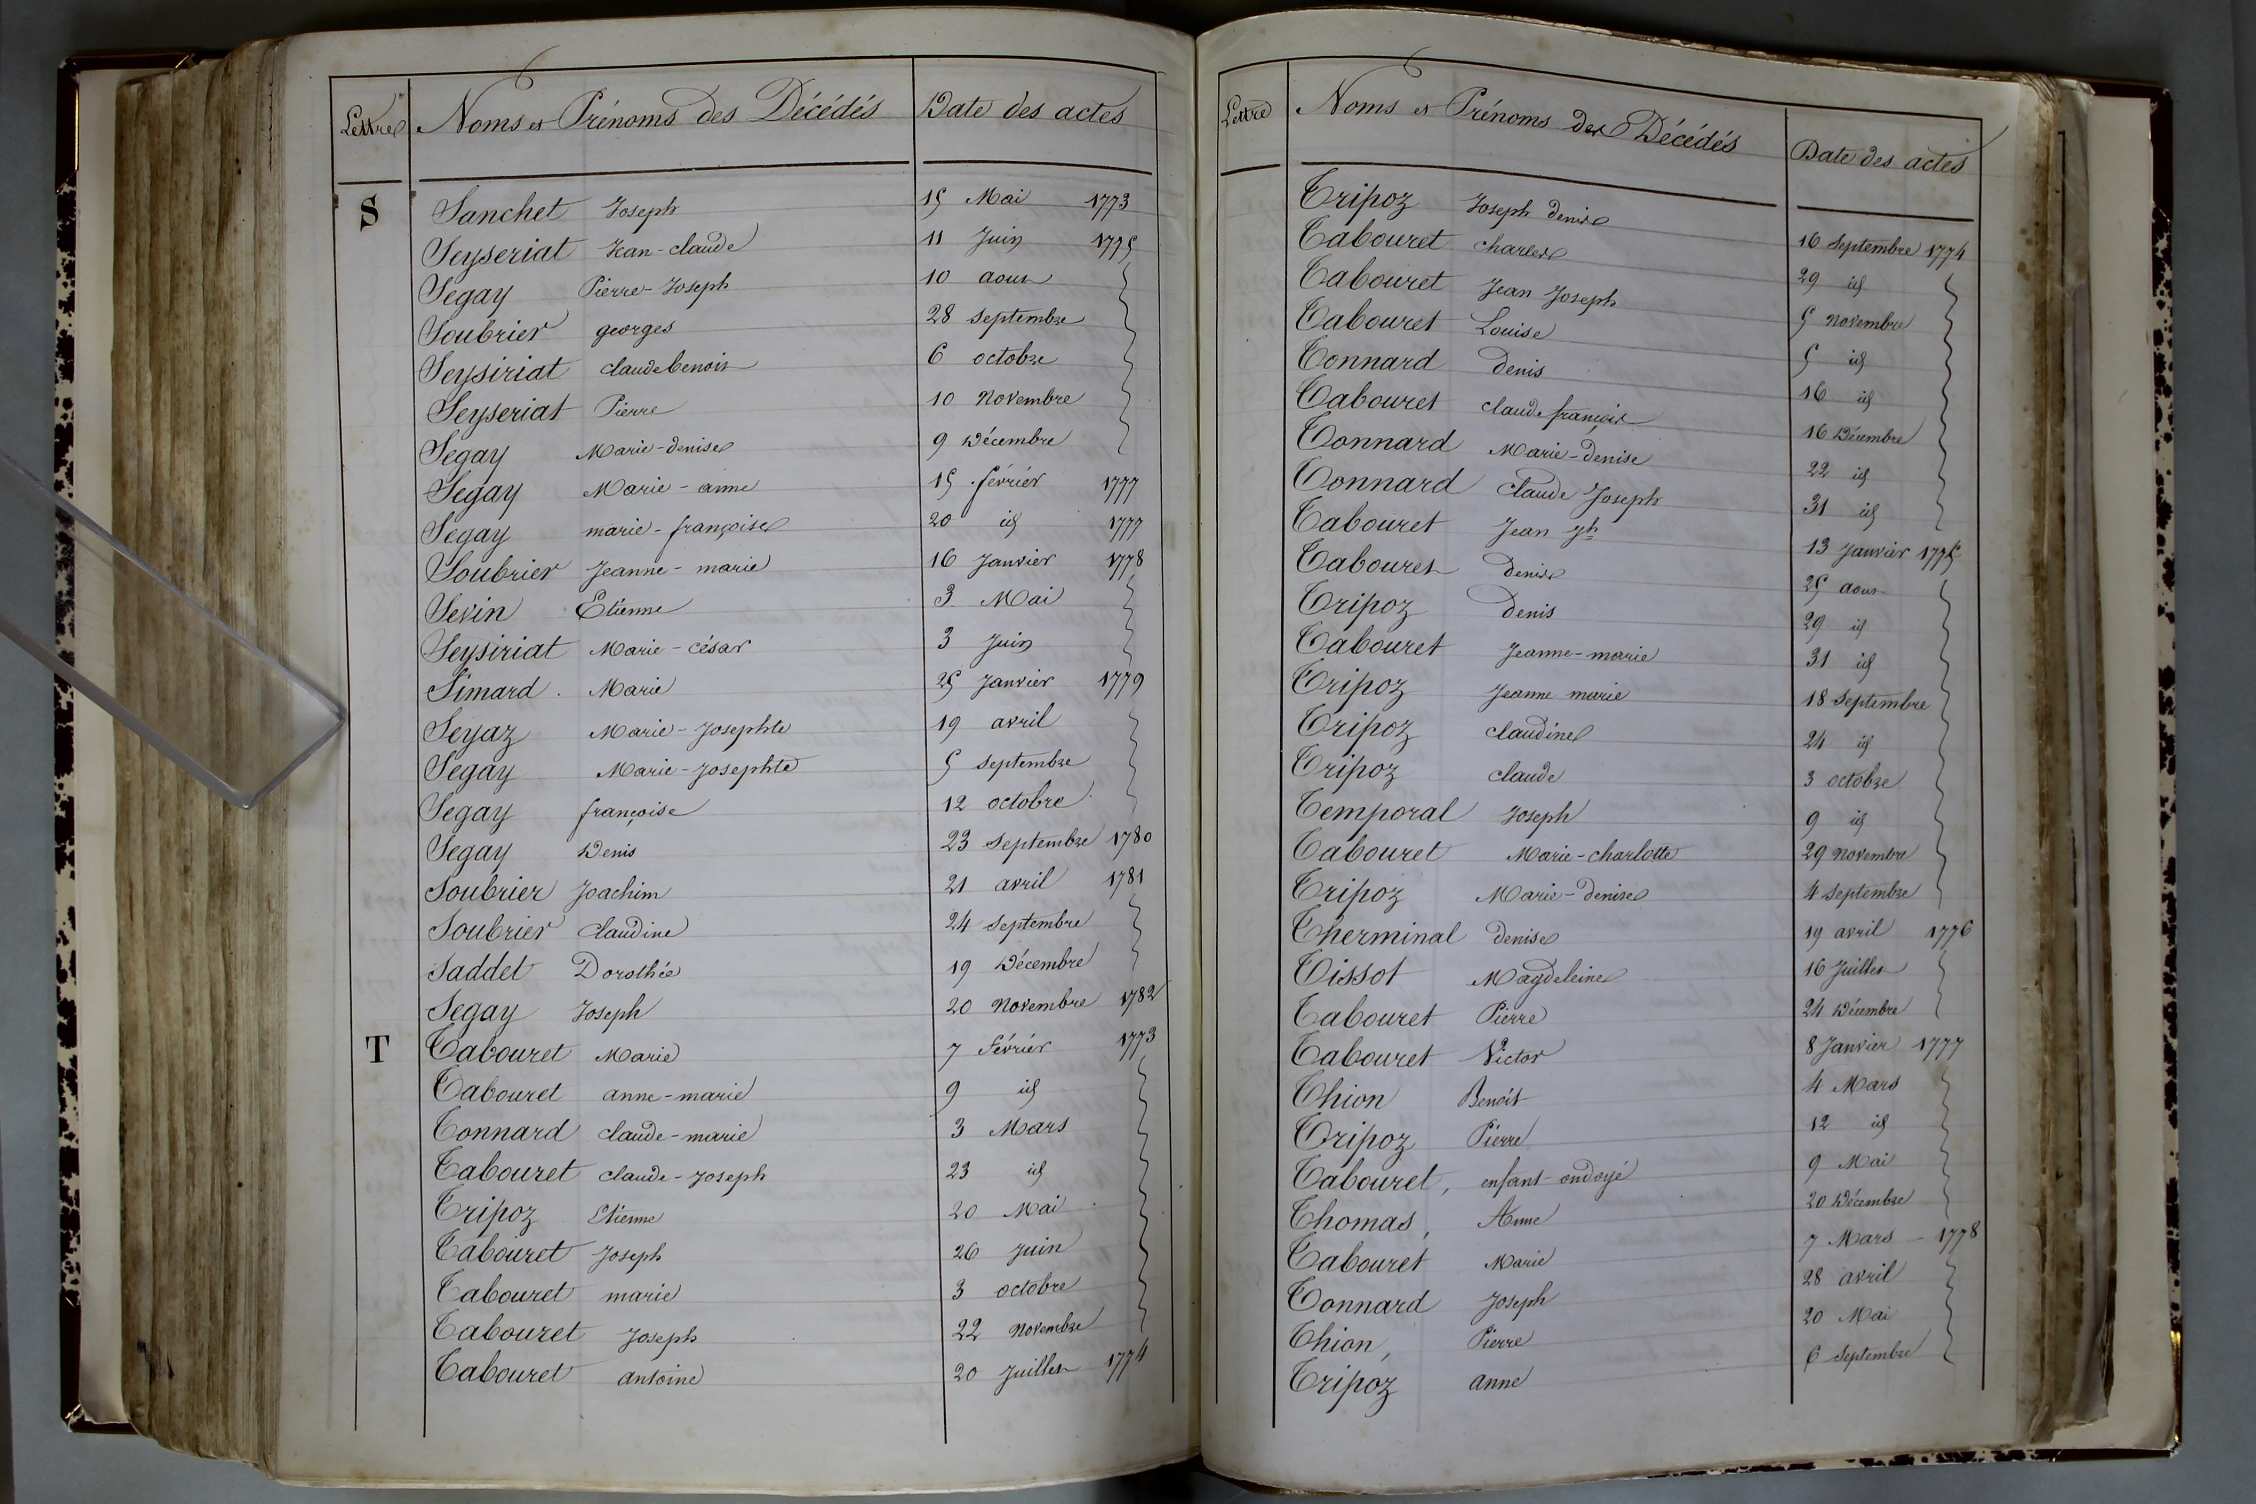 Lettres Noms et Prénoms des Décédés Date des actes
S Sanchet Joseph 15 Mai 1773
Seyseriat Jean-claude 11 Juin 1775
Segay Pierre-Joseph 10 aout
Soubrier georges 28 septembre
Seysiriat claude benoit 6 octobre
Seyseriat Pierre 10 Novembre
Segay Marie-denise 9 Décembre
Segay Marie-anne 15 février 1777
Segay marie-françoise 20 id 1777
Soubrier Jeanne-marie 16 Janvier 1778
Sevin Etienne 3 Mai
Seysiriat Marie-césar 3 Juin
Simard. Marie 25 Janvier 1779
Seyaz Marie-Josephte 19 avril
Segay Marie-Josephte 5 septembre
Segay françoise 12 octobre
Segay Denis 23 septembre 1780
Soubrier Joachim 21 avril 1781
Soubrier Claudine 24 septembre
Saddet Dorothée 19 Décembre
Segay Joseph 20 Novembre 1782
T Tabouret Marie 7 Février 1773
Tabouret anne-marie 9 id
Tonnard claude-marie 3 Mars
Tabouret claude-Joseph 23 id
Tripoz Etienne 20 Mai
Tabouret Joseph 26 Juin
Tabouret marie 3 octobre
Tabouret Joseph 22 Novembre
Tabouret antoine 20 Juillet 1774
Lettre Noms et Prénoms des Décédés Date des actes
Tripoz Joseph denise 16 Septembre 1774
Tabouret charles 29 id
Tabouret Jean Joseph 5 Novembre
Tabouret Louise 5 id
Tonnard Denis 16 id
Tabouret claude françois 16 Décembre
Tonnard Marie-Denise 22 id
Tonnard Claude Joseph 31 id
Tabouret Jean Jh 13 Janvier 1775
Tabouret Denise 25 aout
Tripoz Denis 29 id
Tabouret Jeanne-marie 31 id
Tripoz Jeanne marie 18 Septembre
Tripoz claudine 24 id
Tripoz claude 3 octobre
Temporal Joseph 9 id
Tabouret Marie-charlotte 29 Novembre
Tripoz Marie-Denise 4 Septembre
Therminal Denise 19 avril 1776
Tissot Magdeleine 16 Juillet
Tabouret Pierre 24 Décembre
Tabouret Victor 8 Janvier 1777
Thion Benoit 4 Mars
Tripoz Pierre 12 id
Tabouret, enfant-ondoyé 9 Mai
Thomas, Anne 20 Décembre
Tabouret Marie 7 Mars - 1778
Tonnard Joseph 28 avril
Thion, Pierre 20 Mai
Tripoz anne 6 Septembre